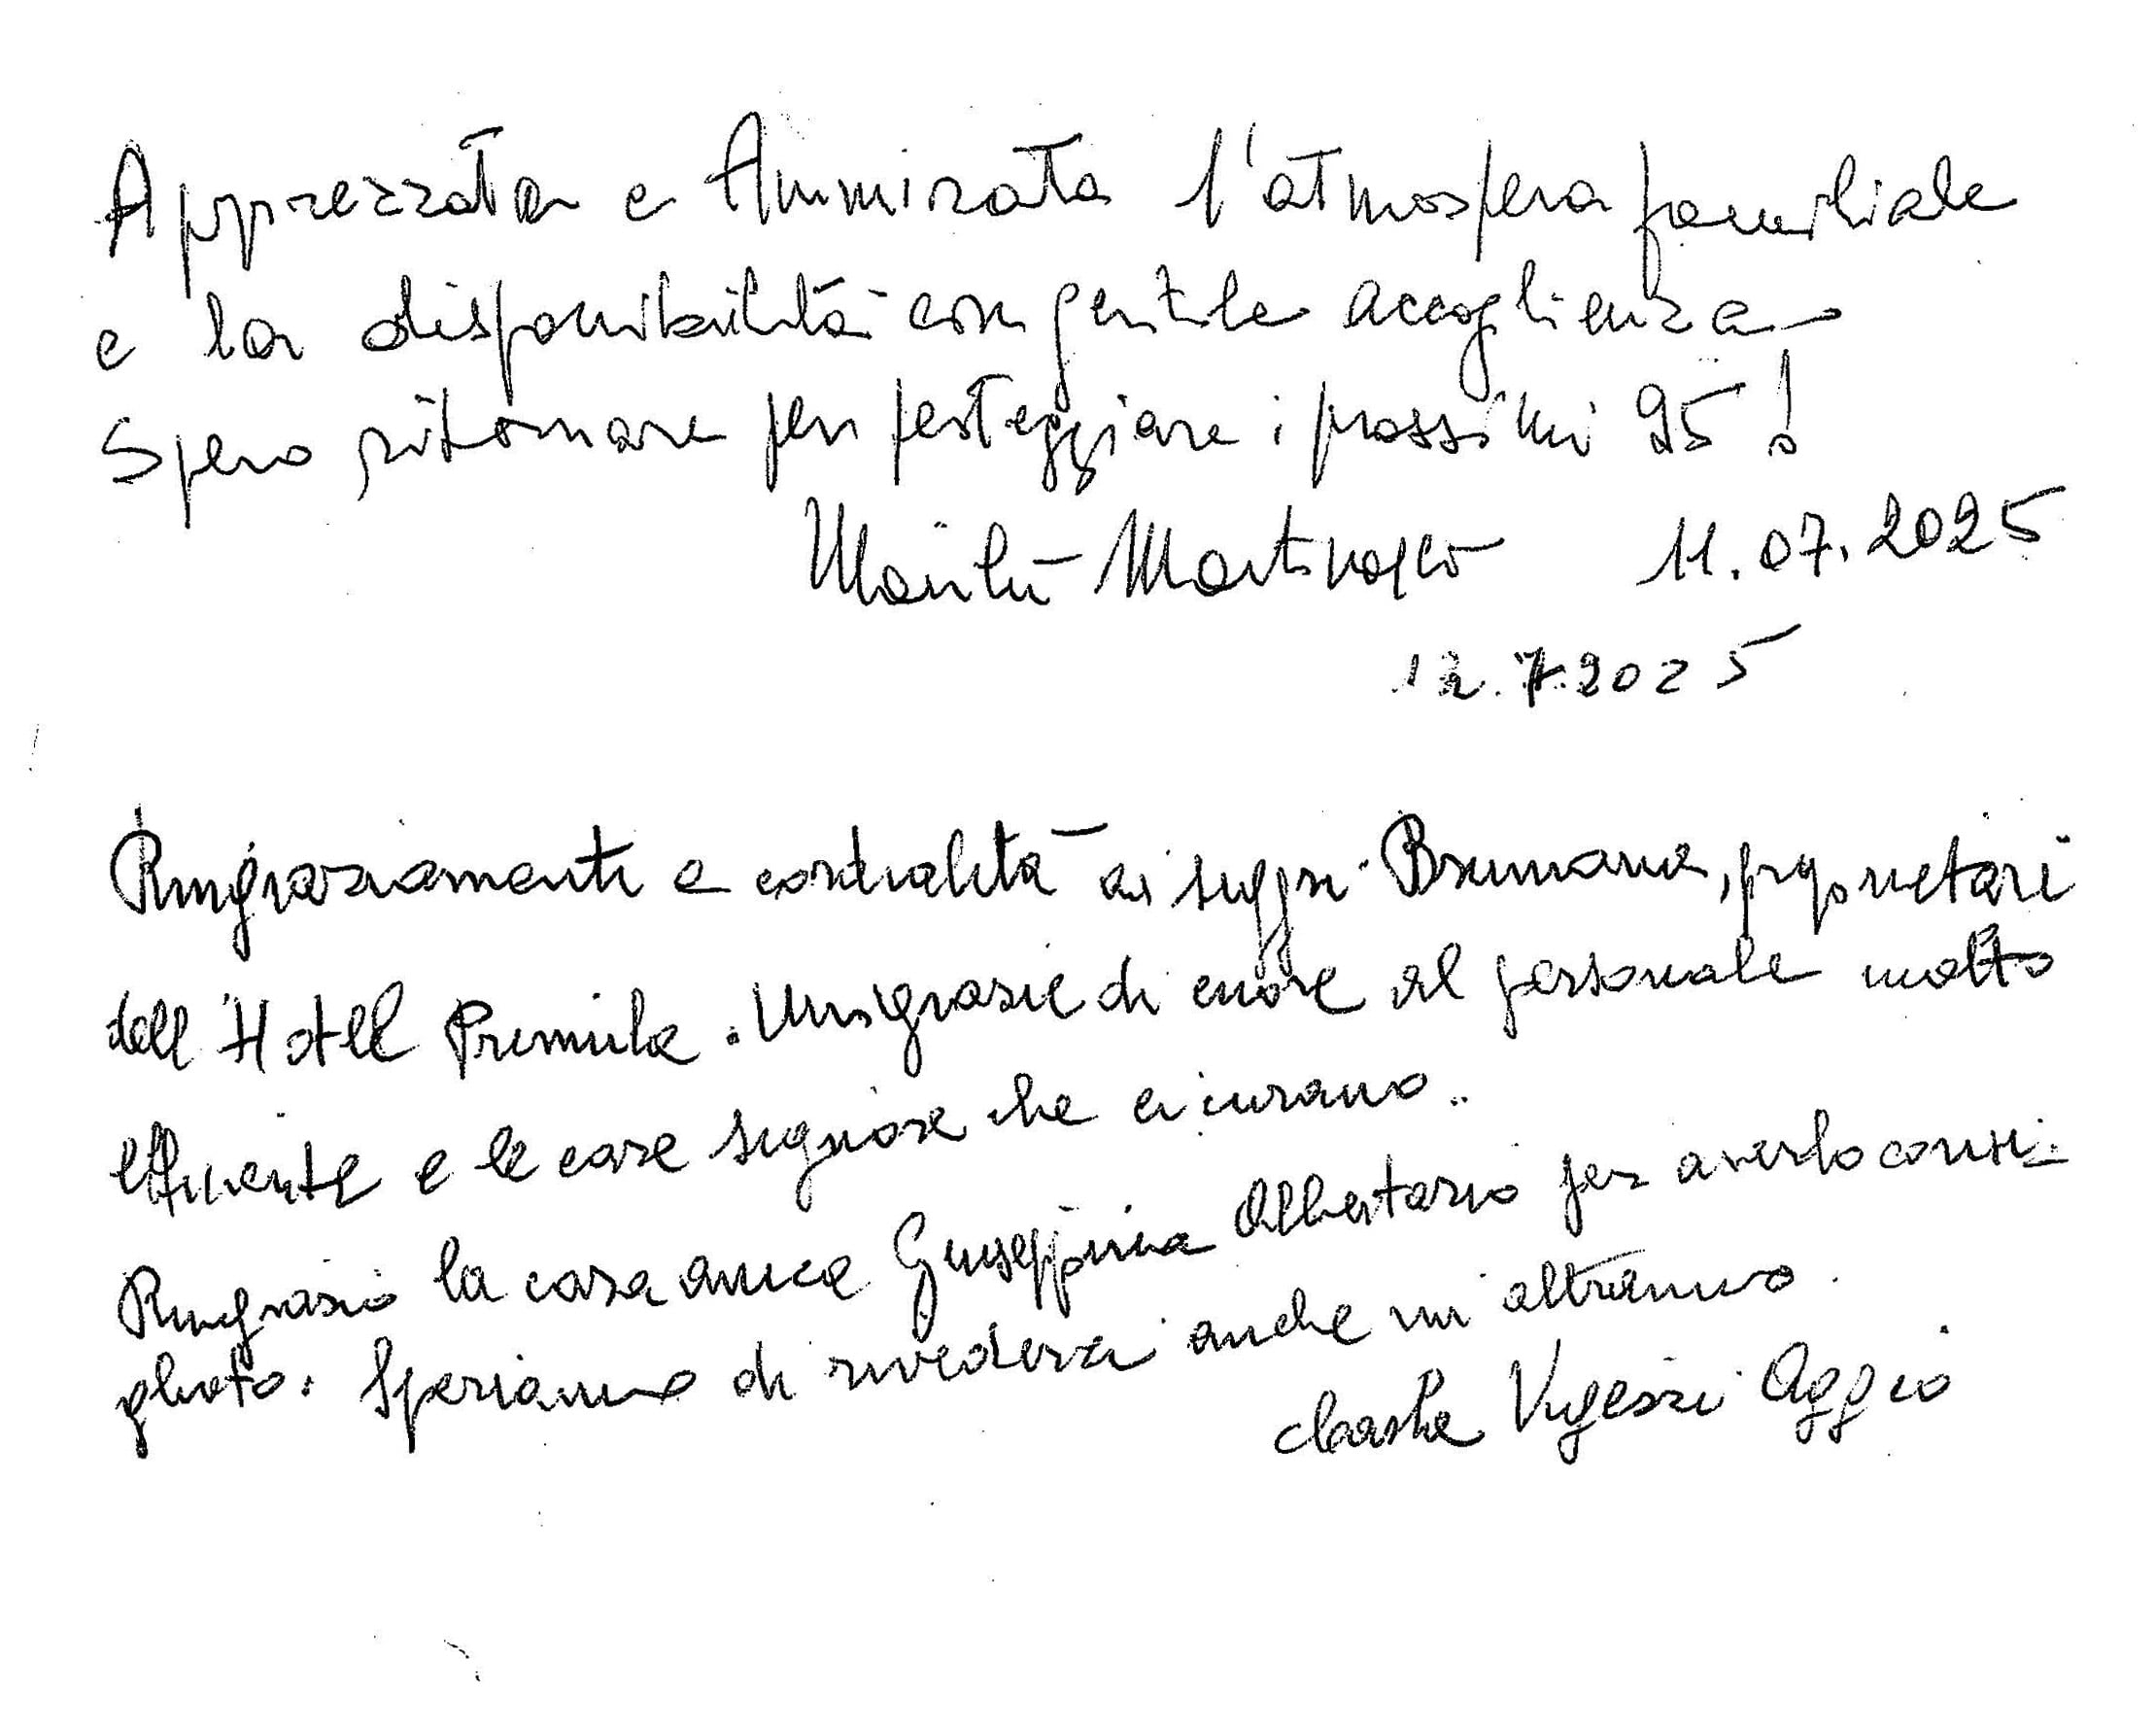 Apprezzata e Ammirata l'atmosfera familiale
e la disponibilità con gentile accoglienza
Spero ritornare per festeggiare i prossimi 95!
Marilù 11.07.2025
12.7.2025
Ringraziamenti e cordialità ai sigg.ri Brumana, proprietari
dell'Hotel Primula. Un grazie di cuore al personale molto
efficiente e le care signore che ci curano..
Ringrazio la cara amica Giuseppina Albertario per averlo consi-
gliato. Speriamo di rivederci anche un altr'anno.
Vigezzi Aggio